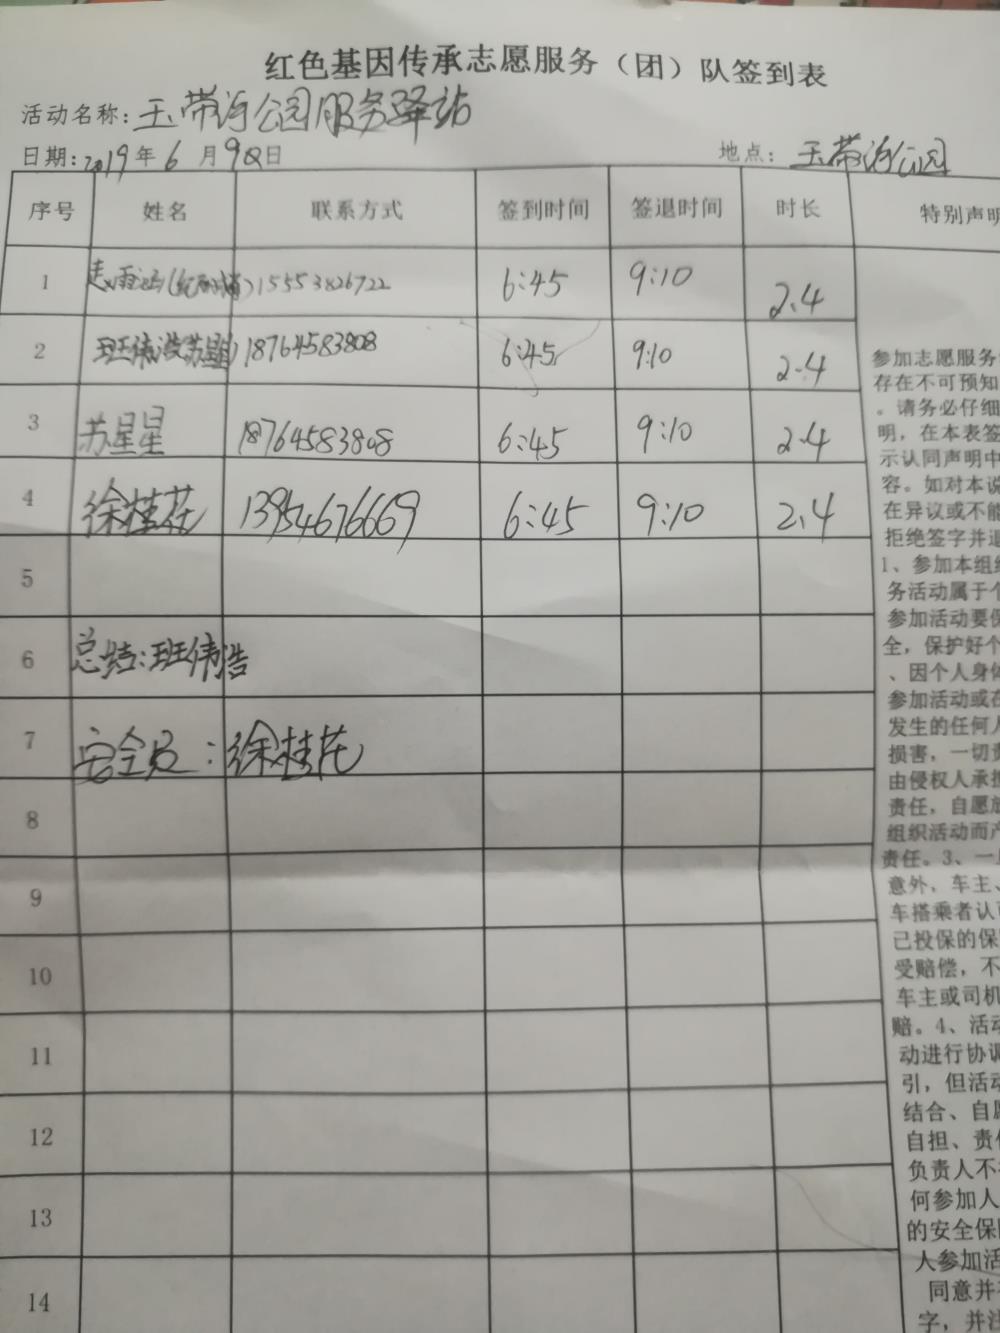 红色基因传承志愿服务（团）队签到表
活动名称：玉带河公园服务驿站
日期：2019年6月9日
地点：玉带河公园
序号 姓名 联系方式 签到时间 签退时间 时长 特别声明
1 15553826722 6:45 9:10 2.4
2 18764583808 6:45 9:10 2.4
3 苏星星 18764583808 6:45 9:10 2.4
4 徐桂花 13954676669 6:45 9:10 2.4
5
6 总结：班伟浩
7 安全员：徐桂花
8
9
10
11
12
13
14
参加志愿服务
存在不可预知
。请务必仔细
明，在本表签
示认同声明中
容。如对本说
在异议或不能
拒绝签字并退
1、参加本组织
务活动属于个
参加活动要保
全，保护好个
、因个人身体
参加活动或在
发生的任何人
损害，一切责
由侵权人承担
责任，自愿放
组织活动而产
责任。3、一旦
意外，车主、
车搭乘者认可
已投保的保
受赔偿，不
车主或司机
赔。4、活动
动进行协调
引，但活动
结合、自愿
自担、责任
负责人不
何参加人
的安全保
人参加活
同意并
字，并注